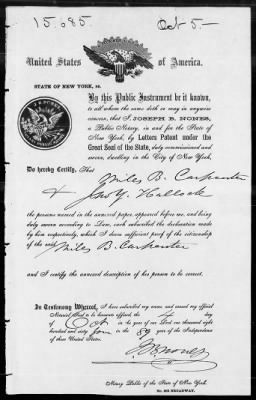 15,085
Oct 5—
United States of America.
STATE OF NEW YORK, ss.
By this Public Instrument be it known,
to all whom the same doth or may in anywise
concern, that I, JOSEPH B. NONES,
a Public Notary, in and for the State of
New York, by Letters Patent under the
Great Seal of the State, duly commissioned and
sworn, dwelling in the City of New York,
Do hereby Certify, That
Miles B. Carpenter
& Jno Y. Hallock
the persons named in the annexed paper, appeared before me, and being
duly sworn according to Law, each subscribed the declaration made
by them respectively, which I deem sufficient proof of the citizenship
of the said Miles B. Carpenter
and I certify the annexed description of his person to be correct.
In Testimony Whereof, I have subscribed my name and caused my official
Notarial Seal to be hereunto affixed the 4 day
of Oct in the year of our Lord one thousand eight
hundred and sixty four in the 89 of the Independence
of these United States.
JB Nones
Notary Public of the State of New York.
BROADWAY.